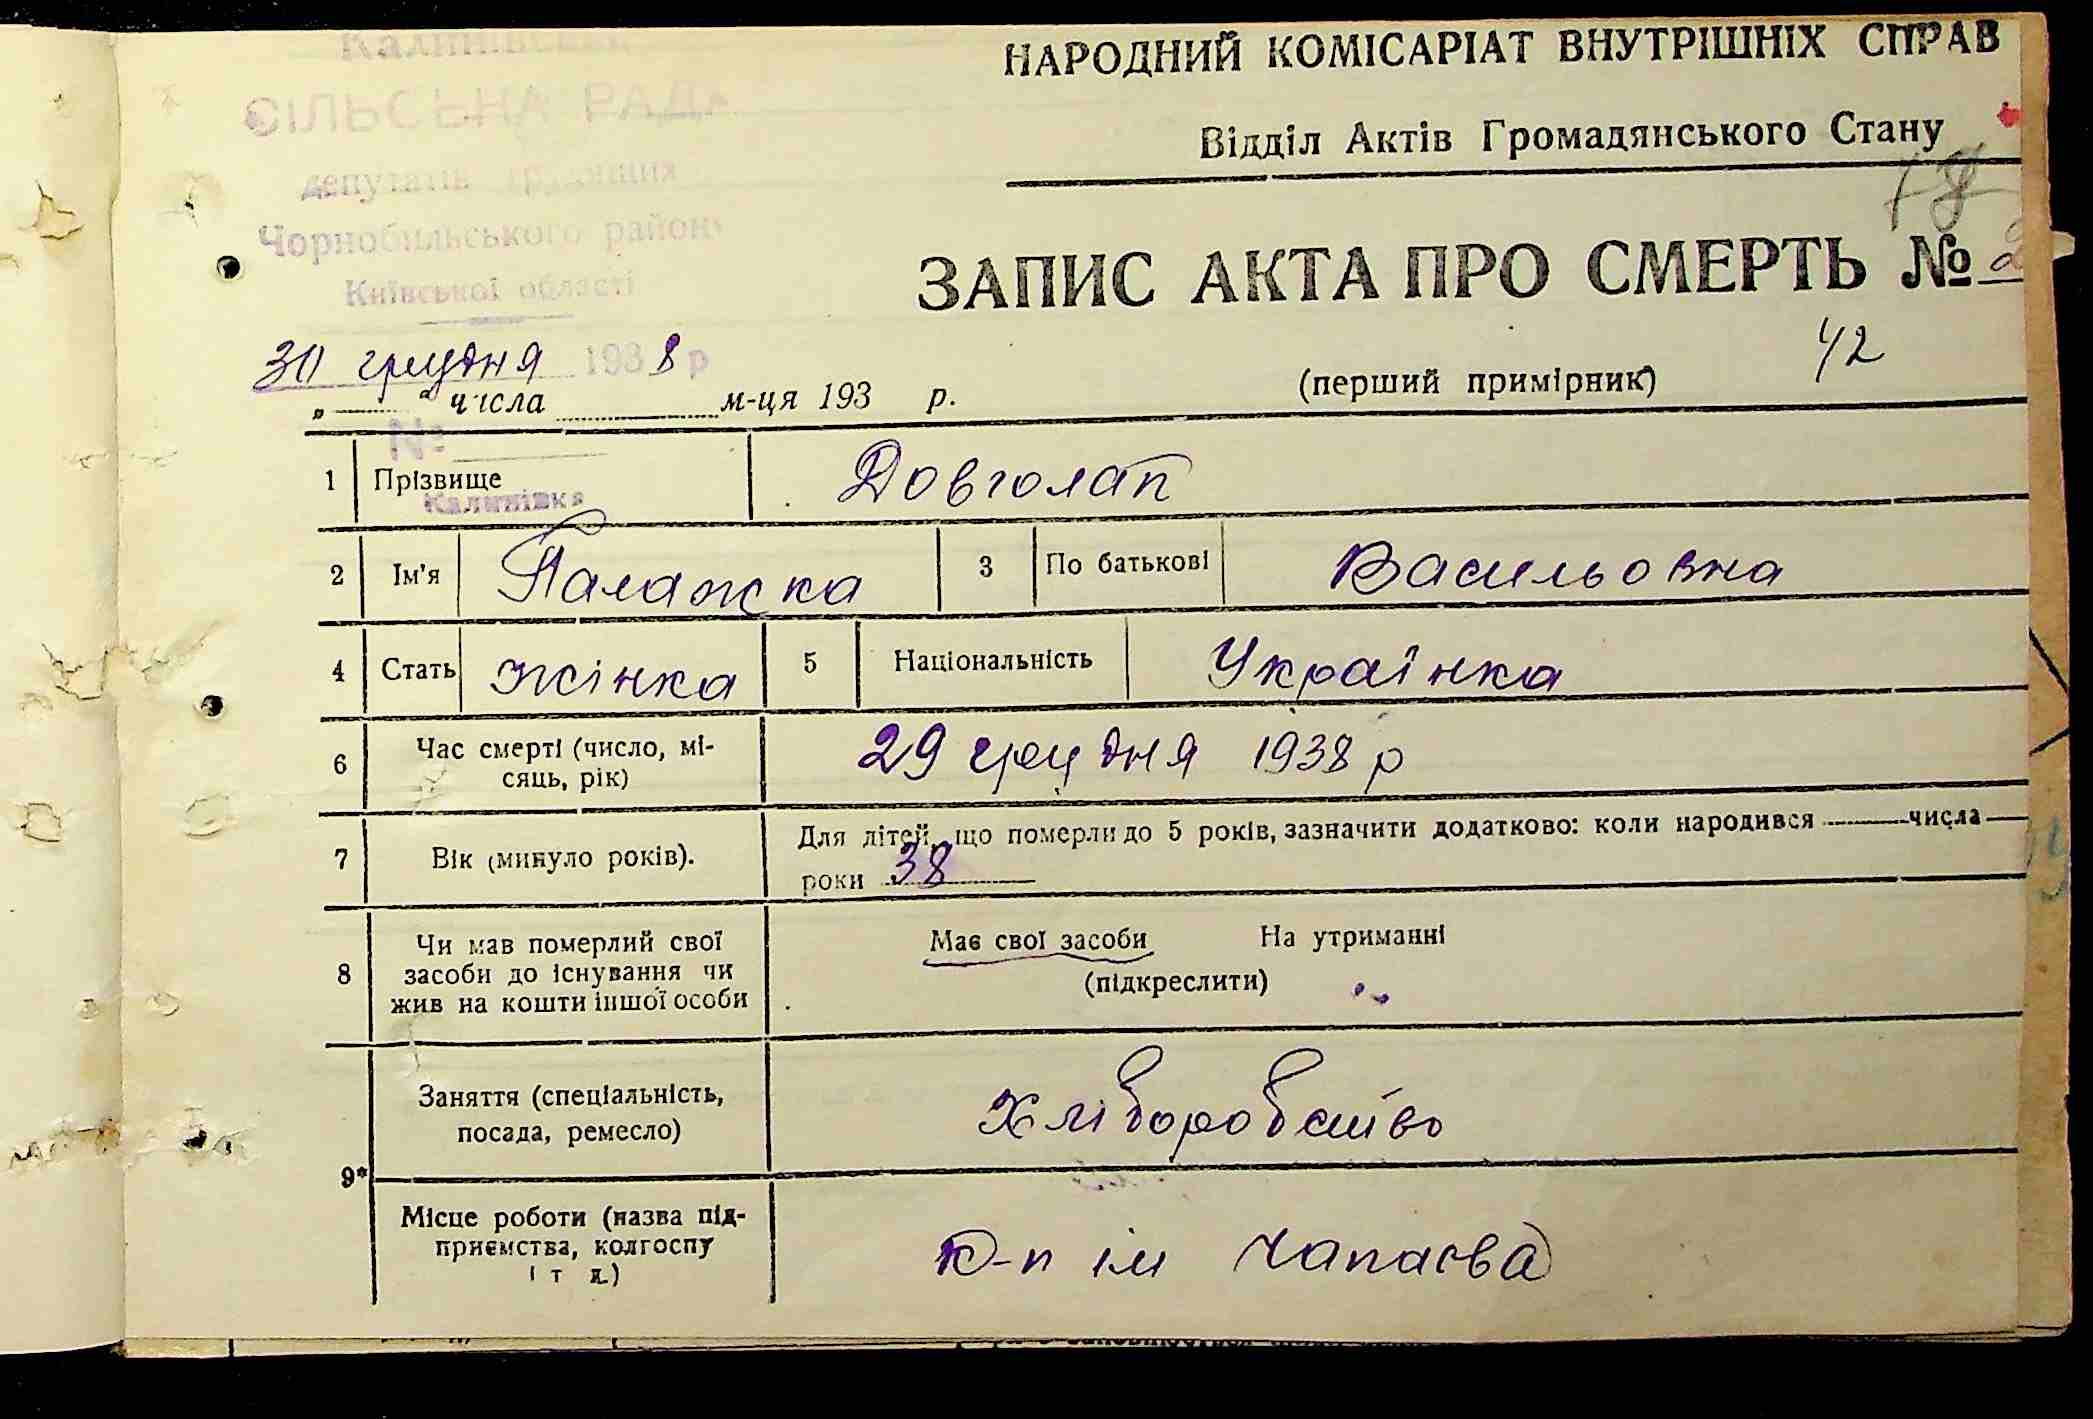 Калинівська
СІЛЬСЬКА РАДА
депутатів трудящих
Чорнобильського району
Київської області
30 грудня 1938 р
№
Калинівка
НАРОДНИЙ КОМІСАРІАТ ВНУТРІШНІХ СПРАВ
Відділ Актів Громадянського Стану
ЗАПИС АКТА ПРО СМЕРТЬ №
42
„ “ числа м-ця 193 р.
(перший примірник)
1 Прізвище Довголап
2 Ім'я Палажка 3 По батькові Васильовна
4 Стать жінка 5 Національність Українка
6 Час смерті (число, мі-
сяць, рік) 29 грудня 1938 р
7 Вік (минуло років). Для літей, що померли до 5 років, зазначити додатково: коли народився числа
роки 38
8 Чи мав померлий свої
засоби до існування чи
жив на кошти іншої особи
Має свої засоби На утриманні
(підкреслити)
9* Заняття (спеціальність,
посада, ремесло) Хліборобство
Місце роботи (назва під-
приємства, колгоспу
і т д.)
К-п ім Чапаєва